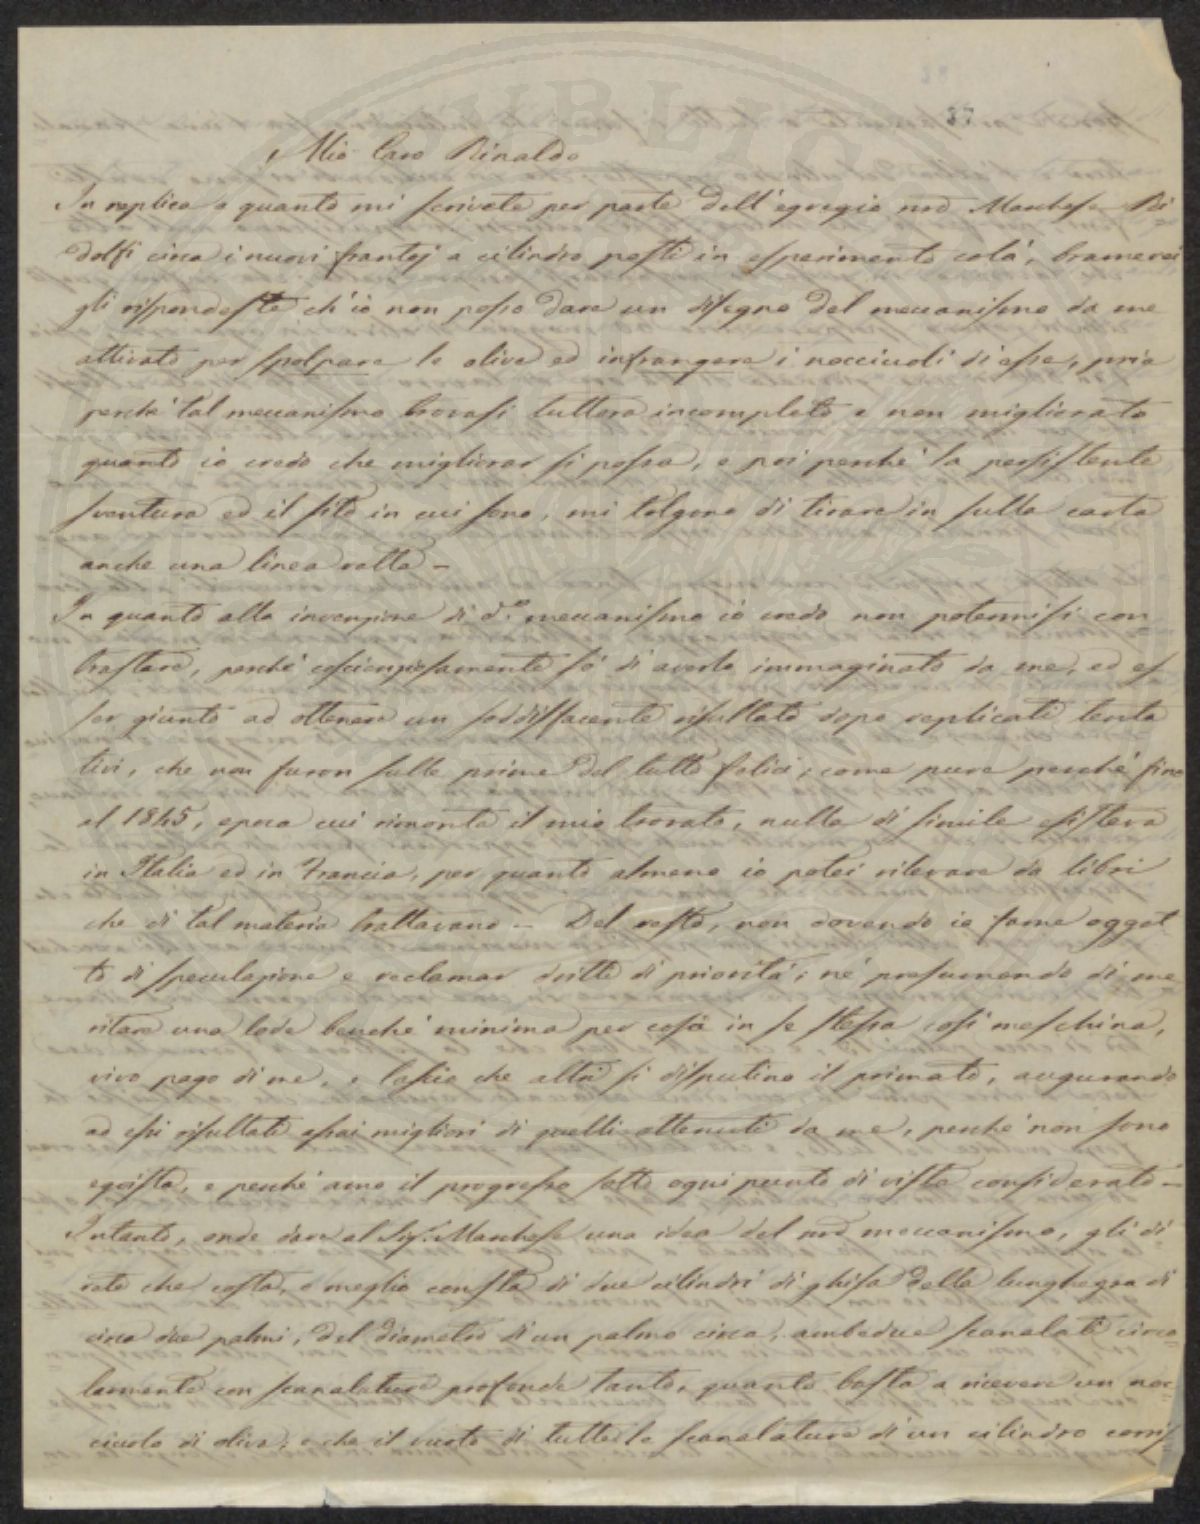 PUBLIC
37
Mio Caro Rinaldo
In replica a quanto mi scrivete per parte dell'egregio nro Marchese Ri
dolfi circa i nuovi frantoj a cilindro posti in esperimento colà, bramerei
gli rispondeste ch'io non posso dare un disegno del meccanismo da me
attivato per spolpare le olive ed infrangere i nocciuoli di esse, pria
perché tal meccanismo trovasi tuttora incompleto e non migliorato
quanto io credo che migliorar si possa, e poi perché la persistente
sventura ed il sito in cui sono, mi tolgono di tirare in sulla carta
anche una linea retta –
In quanto alla invenzione di do. meccanismo io credo non potermisi con
trastare, perché coscienziosamente so di averlo immaginato da me, ed es
ser giunto ad ottenere un soddisfacente risultato dopo replicati tenta
tivi, che non furon sulle prime del tutto felici; come pure perché fino
al 1845, epoca cui rimonta il mio trovato, nulla di simile esisteva
in Italia ed in Francia, per quanto almeno io potei rilevare da libri
che di tal materia trattavano – Del resto, non dovendo io farne ogget
to di speculazione e reclamar dritto di priorità; né presumendo di me
ritare una lode benché minima per cosa in se stessa così meschina,
vivo pago di me, e lascio che altri si disputino il primato, augurando
ad essi risultati assai migliori di quelli ottenuti da me, perché non sono
egoista, e perché amo il progresso sotto ogni punto di vista considerato –
Intanto, onde dare al Sigr. Marchese una idea del mio meccanismo, gli di
rete che costa, o meglio consta di due cilindri di ghisa della lunghezza di
circa due palmi, del diametro di un palmo circa, ambedue scanalati circo
larmente con scanalature profonde tanto, quanto basta a ricevere un noc
ciuolo di oliva; e che il vuoto di tutte le scanalature d'un cilindro corris